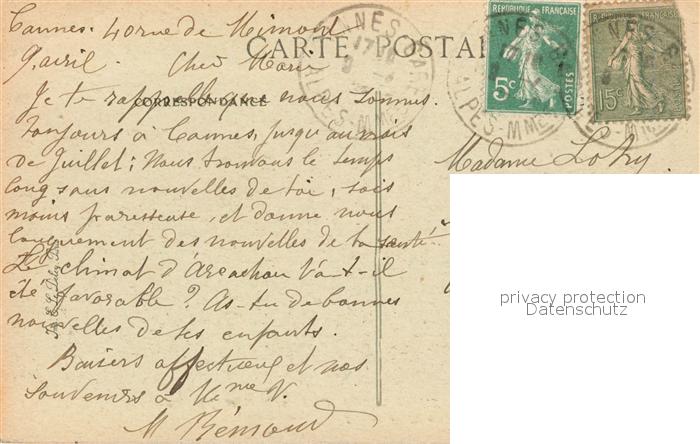 Cannes. 40 rue de Mimont
CARTE POSTALE
9 avril. Chère Marie
CORRESPONDANCE
Je te rappelle que nous sommes
toujours à Cannes, jusqu'au mois
de Juillet; Nous trouvons le temps
long sans nouvelles de toi, sois
moins paresseuse, et donne nous
longuement des nouvelles de ta santé
Le climat d'Arcachon t'a-t-il
été favorable? As-tu de bonnes
nouvelles de tes enfants.
Baisers affectueux et nos
souvenirs à Mme V.
M Rémond
Madame Lotry
REPUBLIQUE FRANÇAISE
5c
POSTES
REPUBLIQUE FRANÇAISE
15c
CANNES GARE
ALPES-MMES
privacy protection
Datenschutz